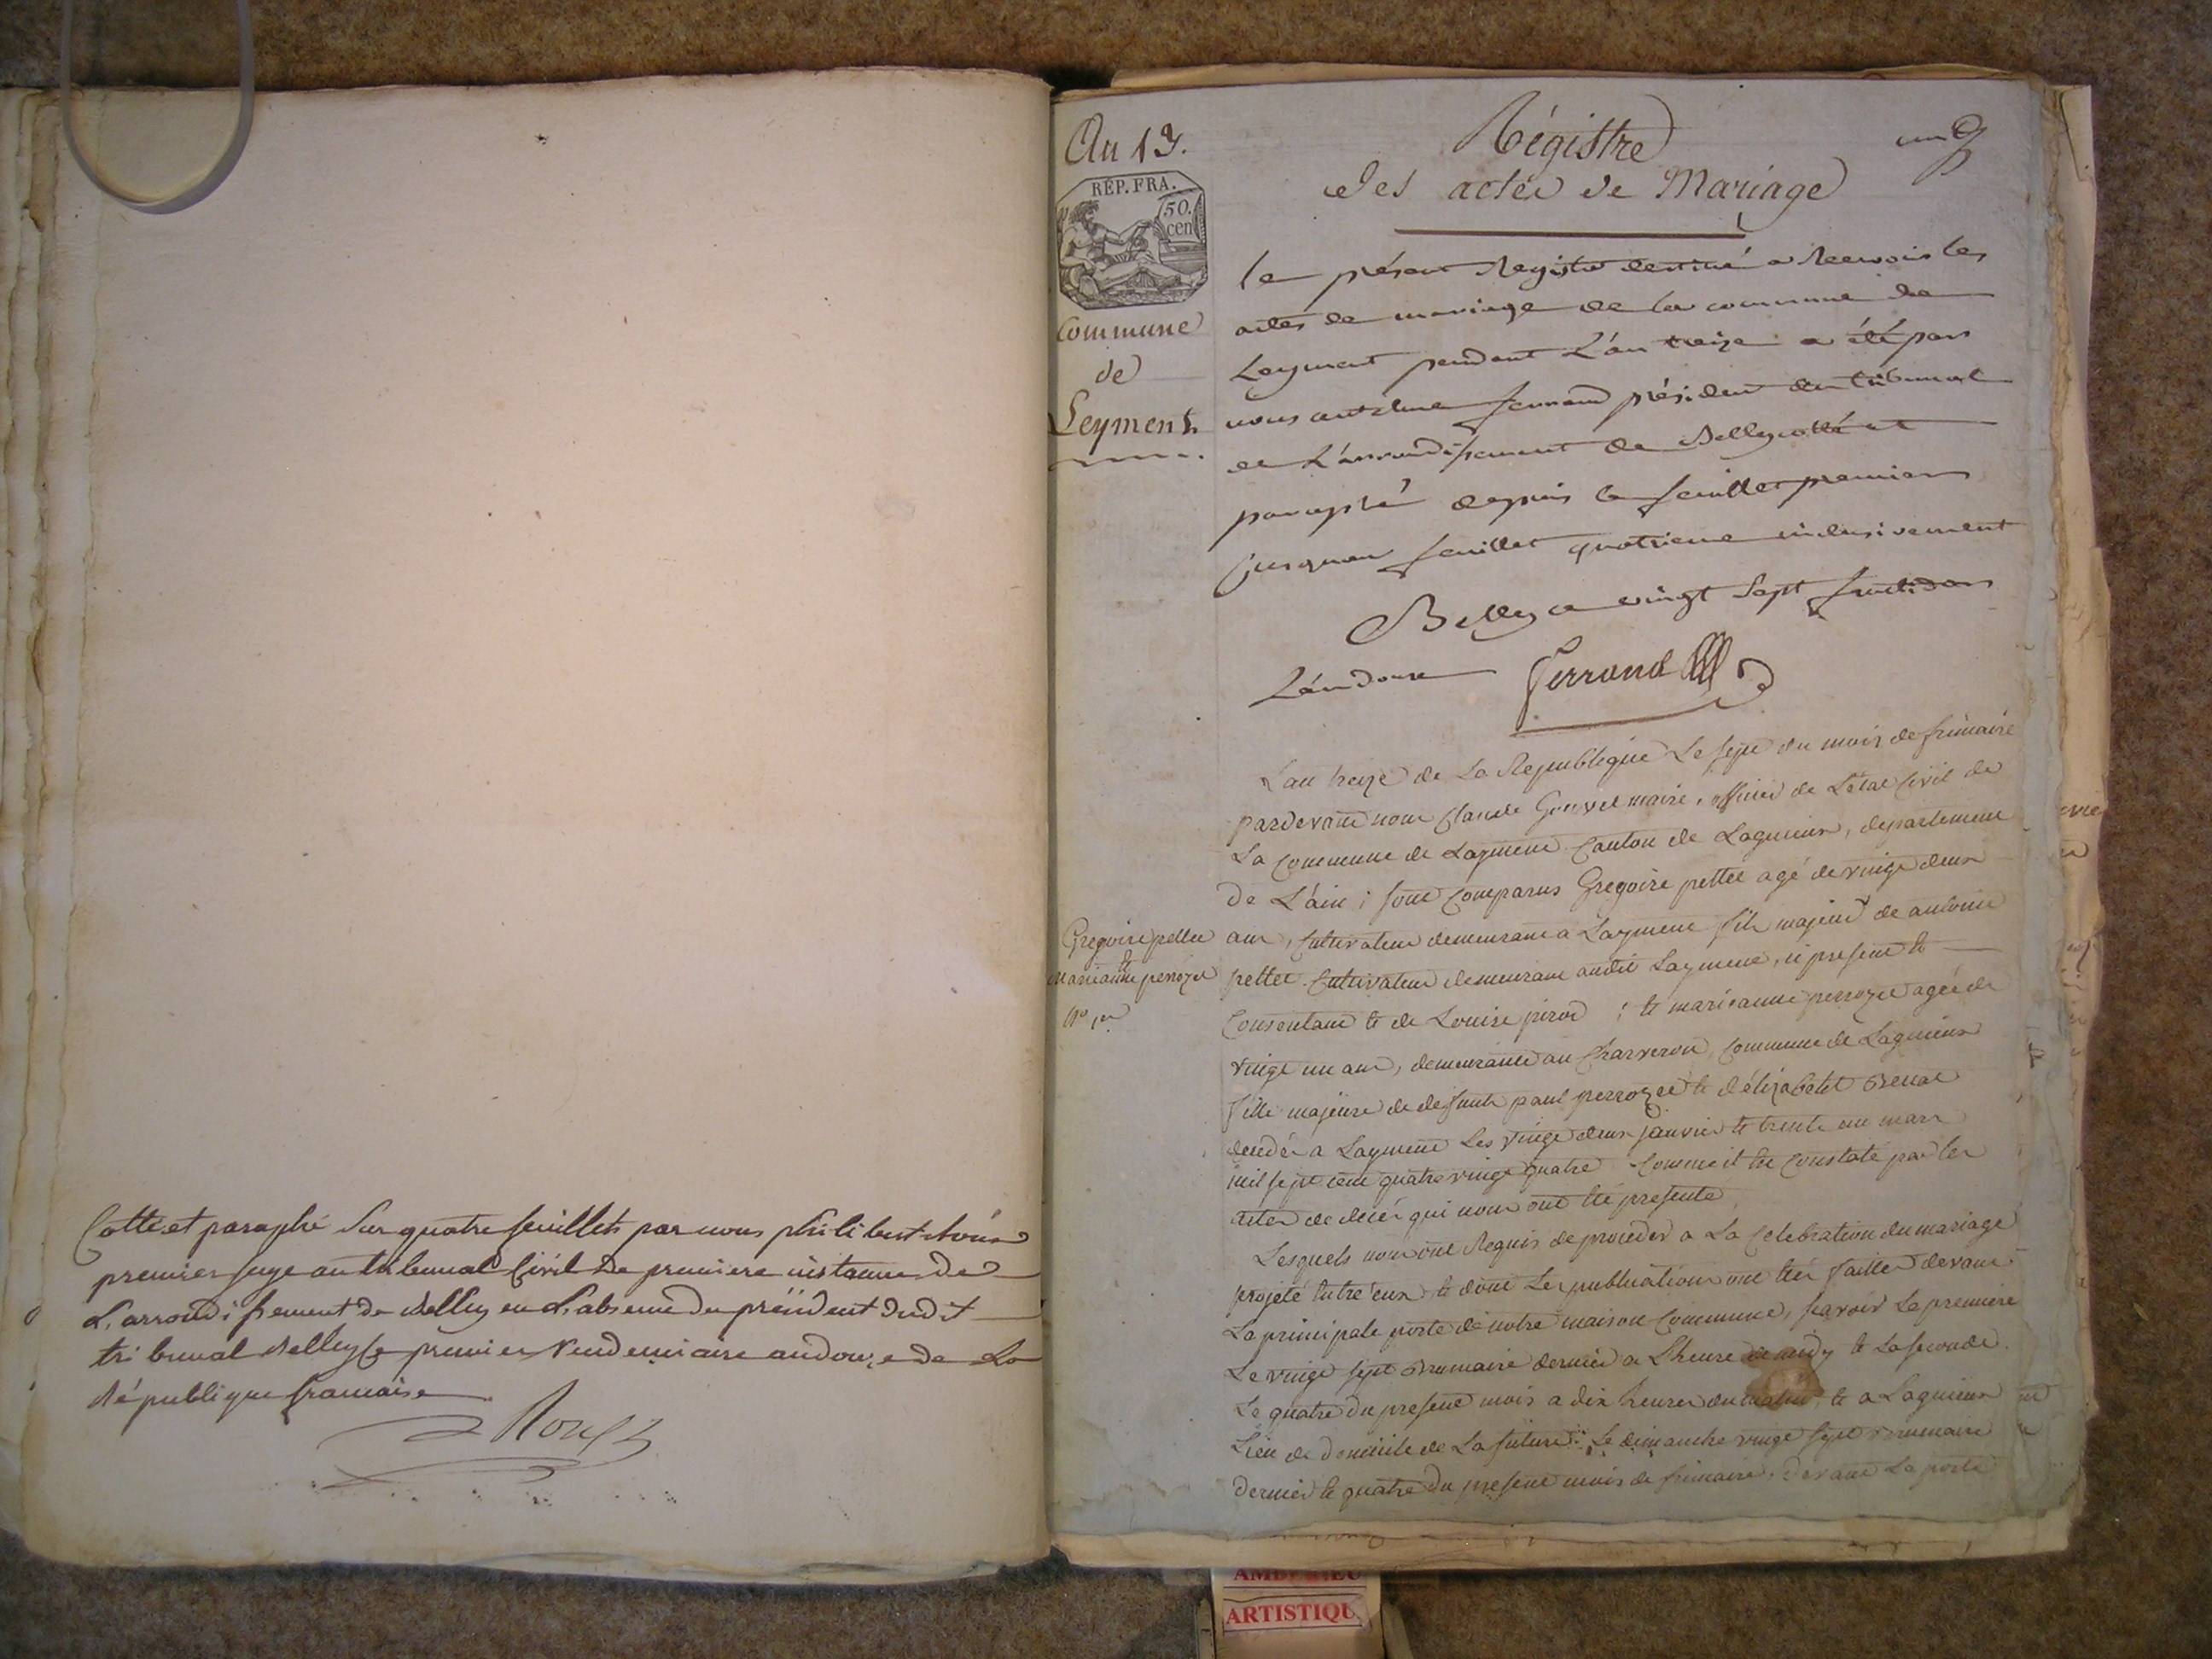 Cotté et paraphé Sur quatre feuillets par nous philibert
premier juge au tribunal Civil de premiere instance de
L'arrondissement de Belley en L'absence du président dudit
tribunal Belley le premier Vendemiaire an douze de La
République francaise
An 13.
RÉP. FRA.
50.
cen
Commune
de
Leyment
Régistre
des actes de Mariage
un
le présent Registre destiné a Recevoir les
actes de mariage de la commune de
Leyment pendant L'an treize a été par
nous antelme ferrand président du tribunal
de L'arrondissement de Belley cotté et
paraphé depuis le feuillet premier
jusquau feuillet quatrieme inclusivement
Belley ce vingt Sept fructidor
L'an douze
Ferrand
L'an treize de La Republique Le sept du mois de frimaire
pardevant nous Claude maire, officier de L'etat Civil de
La Commune de Layment Canton de Lagnieux, departement
de L'ain ; sont Comparus Gregoire pettet agé de vingt deux
Gregoire pettet
et
marieanne perrozet
N° 1er
ans, Cultivateur demeurant a Layment fils majeur de antoine
pettet Cultivateur demeurant audit Layment, ci present et
Consentant et de Louise pirod ; et marieanne perrozet agée de
vingt un ans, demeurante au Charveron, Commune de Lagnieux
fille majeure de defunts paul perrozet et d'élizabetet
decedés a Layment Les vingt deux janvier et trente un mars
mil sept cent quatre vingt quatre Comme il est Constaté par les
actes de décés qui nous ont été presenté
Lesquels nous ont Requis de proceder a La Celebration du mariage
projeté entre eux et dont Les publications ont étés faittes devant
La principale porte de notre maison Commune, sçavoir La premiere
Le vingt sept Brumaire dernier a L'heure de midy et La seconde
Le quatre du present mois a dix heures du matin, et a Lagnieux
Lieu de Domicile de La future : Le dimanche vingt sept Brumaire
dernier et quatre du present mois de frimaire, devant La porte
ARTISTIQU